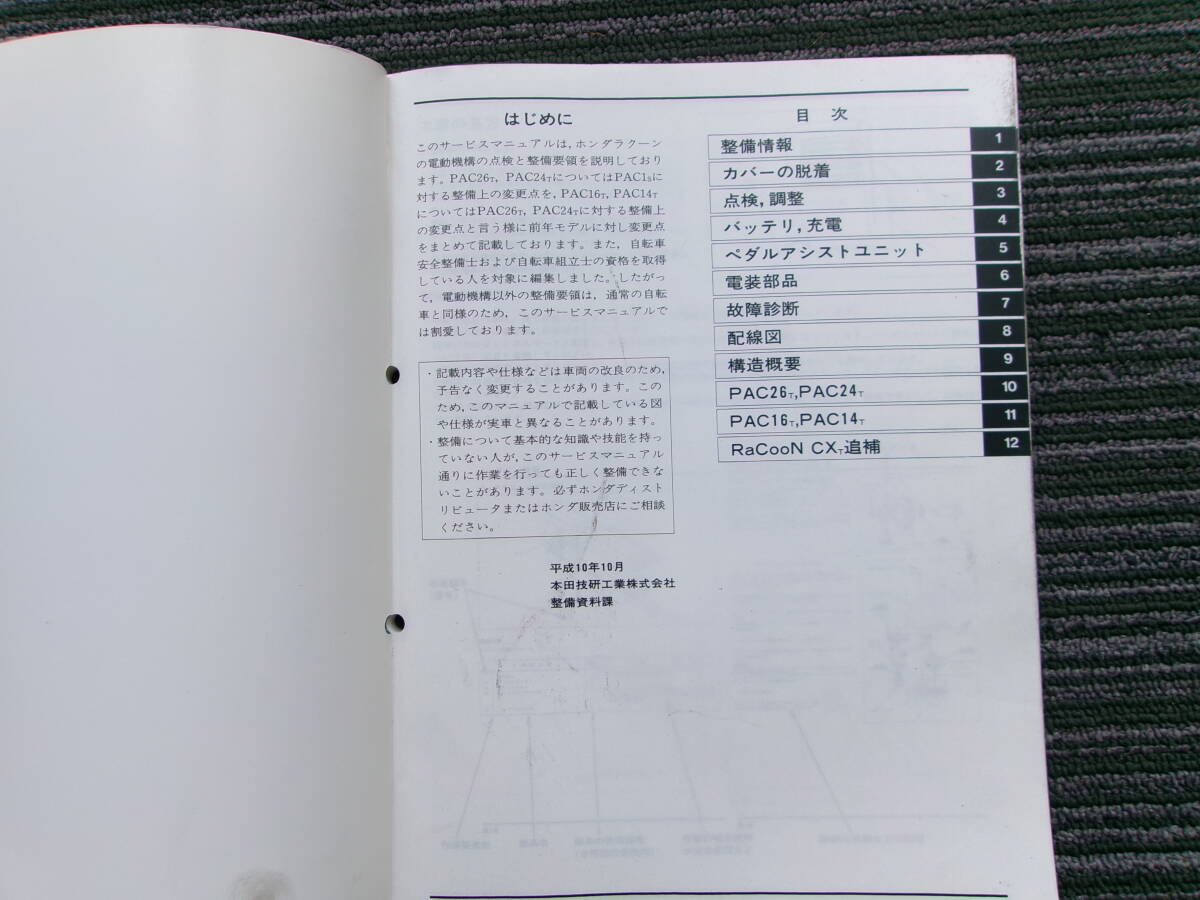 はじめに
このサービスマニュアルは，ホンダラクーン
の電動機構の点検と整備要領を説明しており
ます。PAC26T，PAC24TについてはPAC1Sに
対する整備上の変更点を，PAC16T，PAC14T
についてはPAC26T，PAC24Tに対する整備上
の変更点と言う様に前年モデルに対し変更点
をまとめて記載しております。また，自転車
安全整備士および自転車組立士の資格を取得
している人を対象に編集しました。したがっ
て，電動機構以外の整備要領は，通常の自転
車と同様のため，このサービスマニュアルで
は割愛しております。
・記載内容や仕様などは車両の改良のため，
予告なく変更することがあります。この
ため，このマニュアルで記載している図
や仕様が実車と異なることがあります。
・整備について基本的な知識や技能を持っ
ていない人が，このサービスマニュアル
通りに作業を行っても正しく整備できな
いことがあります。必ずホンダディスト
リビュータまたはホンダ販売店にご相談
ください。
平成10年10月
本田技研工業株式会社
整備資料課
目 次
整備情報 1
カバーの脱着 2
点検，調整 3
バッテリ，充電 4
ペダルアシストユニット 5
電装部品 6
故障診断 7
配線図 8
構造概要 9
PAC26T,PAC24T 10
PAC16T,PAC14T 11
RaCooN CXT追補 12